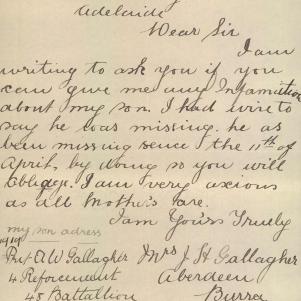 Adelaide
Dear Sir
I am
writing to ask you if you
can give me any Infamition
about my son. I had wire to
say he was missing. he as
been missing sence the 11th of
April, by doing so you will
Oblidge. I am very axcious
as all Mother's are.
I am Yours Truely
my son adress
Pvt A W Gallagher Mrs J H Gallagher
4 Reforcement Aberdeen
45 Battallion Burra